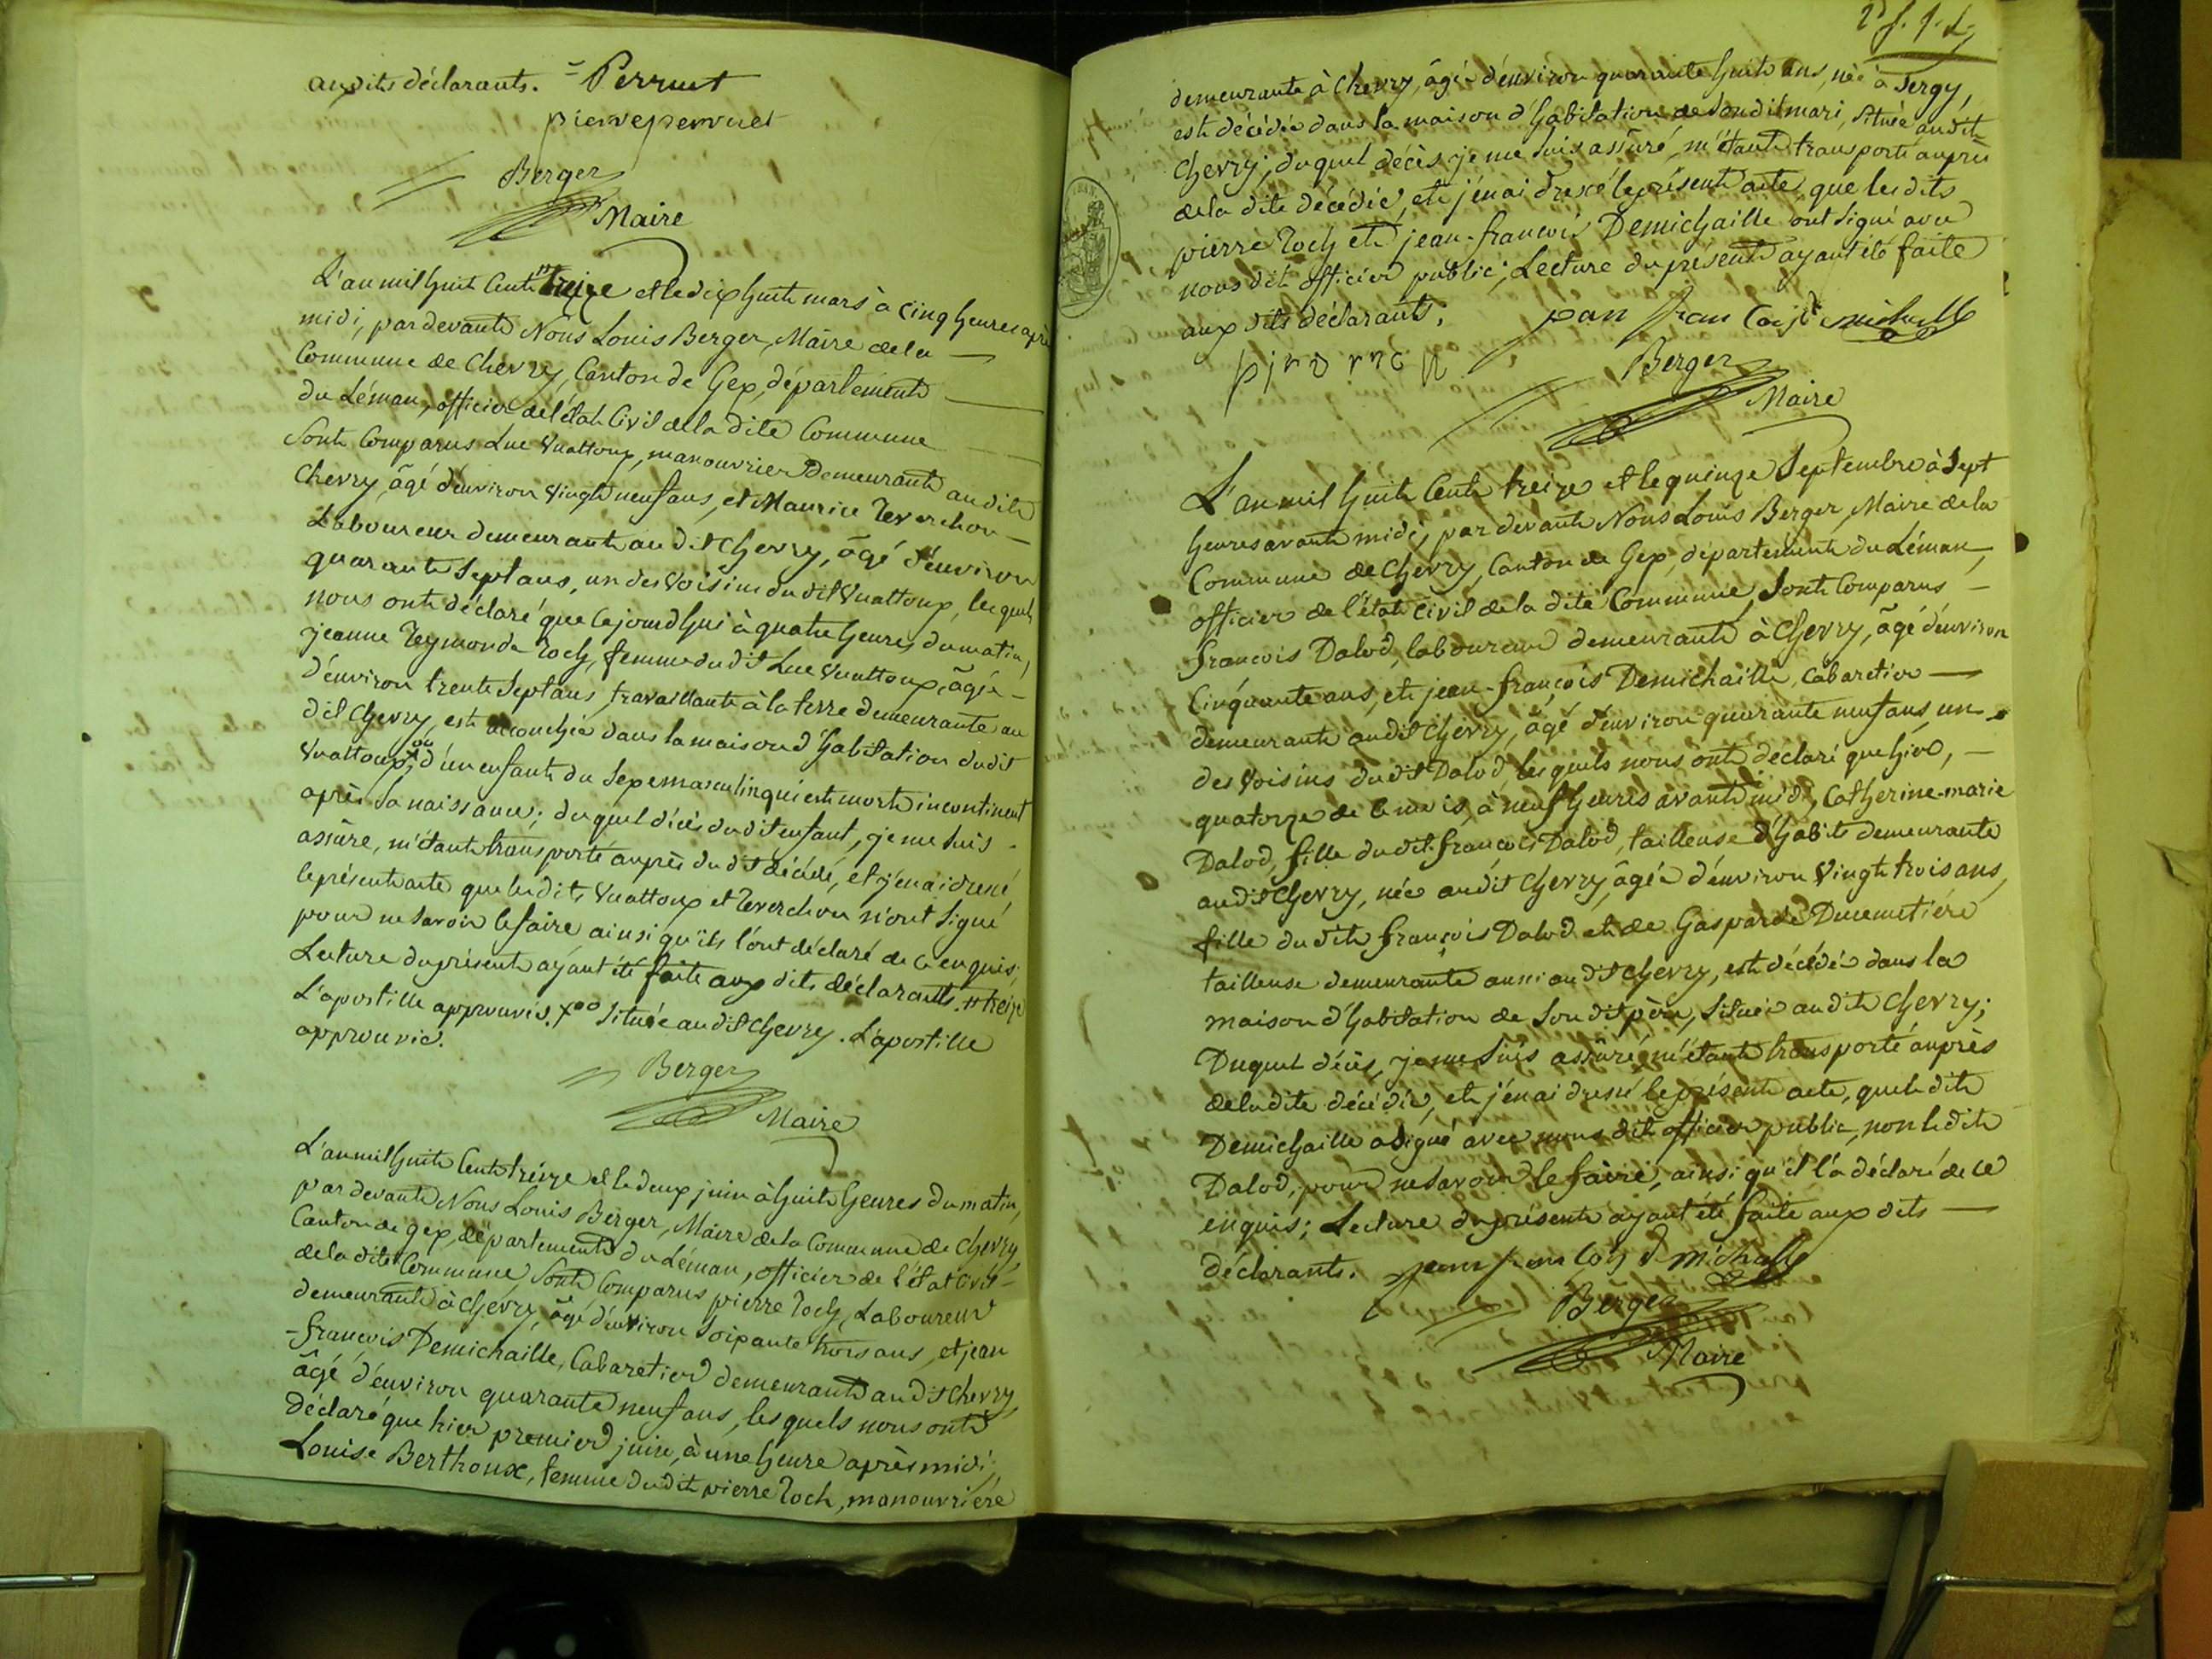 auxdits déclarants. = Perruet
pierre perruet
Berger
Maire
L'an mil huit Cent treize et le dix huit mars à Cinq heures après
midi, par devant Nous Louis Berger, Maire de la
Commune de Chevry, Canton de Gex, département
du Léman, officier de l'état Civil de la dite Commune
Sont Comparus Luc Vuattoux, manouvrier demeurant au dit
Chevry, âgé d'environ Vingt neuf ans, et Maurice Reverchon
Laboureur demeurant au dit Chevry, âgé d'environ
quarante Sept ans, un des Voisins du dit Vuattoux, lesquels
nous ont déclaré que cejourd'hui à quatre heures du matin,
jeanne Reymonde Roch, femme du dit Luc Vuattoux, âgée
d'environ trente Sept ans, travaillante à la terre demeurante au
dit Chevry, est accouchée dans la maison d'habitation du dit
Vuattoux, d'un enfant du Sexe masculin qui est mort incontinent
après Sa naissance; duquel décès du dit enfant, je me Suis
assûré, m'étant transporté auprès du dit décédé, et j'en ai dressé
le présent acte que les dits Vuattoux et Reverchon n'ont Signé
pour ne Savoir le faire ainsi qu'ils l'ont déclaré de ce enquis;
Lecture du présent ayant été faite aux dits déclarants. # treize
L'apostille approuvée. Située au dit Chevry. L'apostille
approuvée.
Berger
Maire
L'an mil huit Cent treize et le deux juin à huit heures du matin,
par devant Nous Louis Berger, Maire de la Commune de Chevry
Canton de gex, département du Léman, officier de l'état Civil
de la dite Commune Sont Comparus pierre Roch, Laboureur
demeurant à Chevry, âgé d'environ Soixante trois ans, et jean
-francois Demichaille, Cabaretier demeurant au dit Chevry,
âgé d'environ quarante neuf ans, lesquels nous ont
déclaré que hier premier juin, à une heure après midi,
Louise Berthoux, femme du dit pierre Roch, manouvrière
demeurante à Chevry, âgée d'environ quarante huit ans, née à Sergy,
est décédée dans la maison d'habitation de Son dit mari, Située au dit
Chevry; duquel décès je me Suis assûré, m'étant transporté auprès
de la dite décédée, et j'en ai dressé le présent acte, que les dits
pierre Roch et jean-francois Demichaille ont Signé avec
nous dit officier public; Lecture du présent ayant été faite
aux dits déclarants;
Berger
Maire
L'an mil huit Cent treize et le quinze Septembre à Sept
heures avant midi, par devant Nous Louis Berger, Maire de la
Commune de Chevry, Canton de Gex, département du Léman,
officier de l'état Civil de la dite Commune, Sont Comparus
francois Dalod, laboureur demeurant à Chevry, âgé d'environ
Cinquante ans, et jean-françois Demichaille, Cabaretier
demeurant au dit Chevry, âgé d'environ quarante neuf ans, un
des Voisins du dit Dalod, lesquels nous ont déclaré que hier,
quatorze de ce mois, à neuf heures avant midi, Catherine-marie
Dalod, fille du dit françois Dalod, tailleuse d'habits demeurante
au dit Chevry, née au dit Chevry, âgée d'environ Vingt trois ans,
fille du dit françois Dalod et de Gasparde Ducimetière
tailleuse demeurante aussi au dit Chevry, est décédée dans la
maison d'habitation de Son dit père, Située au dit Chevry;
Duquel décès, je me Suis assûré, m'étant transporté auprès
de la dite décédée, et j'en ai dressé le présent acte, que le dit
Demichaille a Signé avec nous dit officier public, non le dit
Dalod, pour ne Savoir le faire, ainsi qu'il l'a déclaré de ce
enquis; Lecture du présent ayant été faite aux dits
déclarants.
Berger
Maire